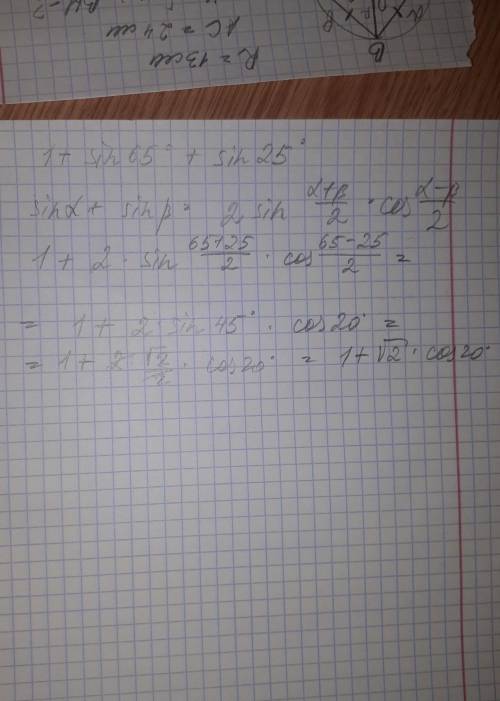 R = 13 см
AC = 24 см
B
1 + sin 65° + sin 25°
sin α + sin β = 2 sin (α+β)/2 · cos (α-β)/2
1 + 2 · sin (65+25)/2 · cos (65-25)/2 =
= 1 + 2 · sin 45° · cos 20° =
= 1 + 2 √2/2 · cos 20° = 1 + √2 · cos 20°